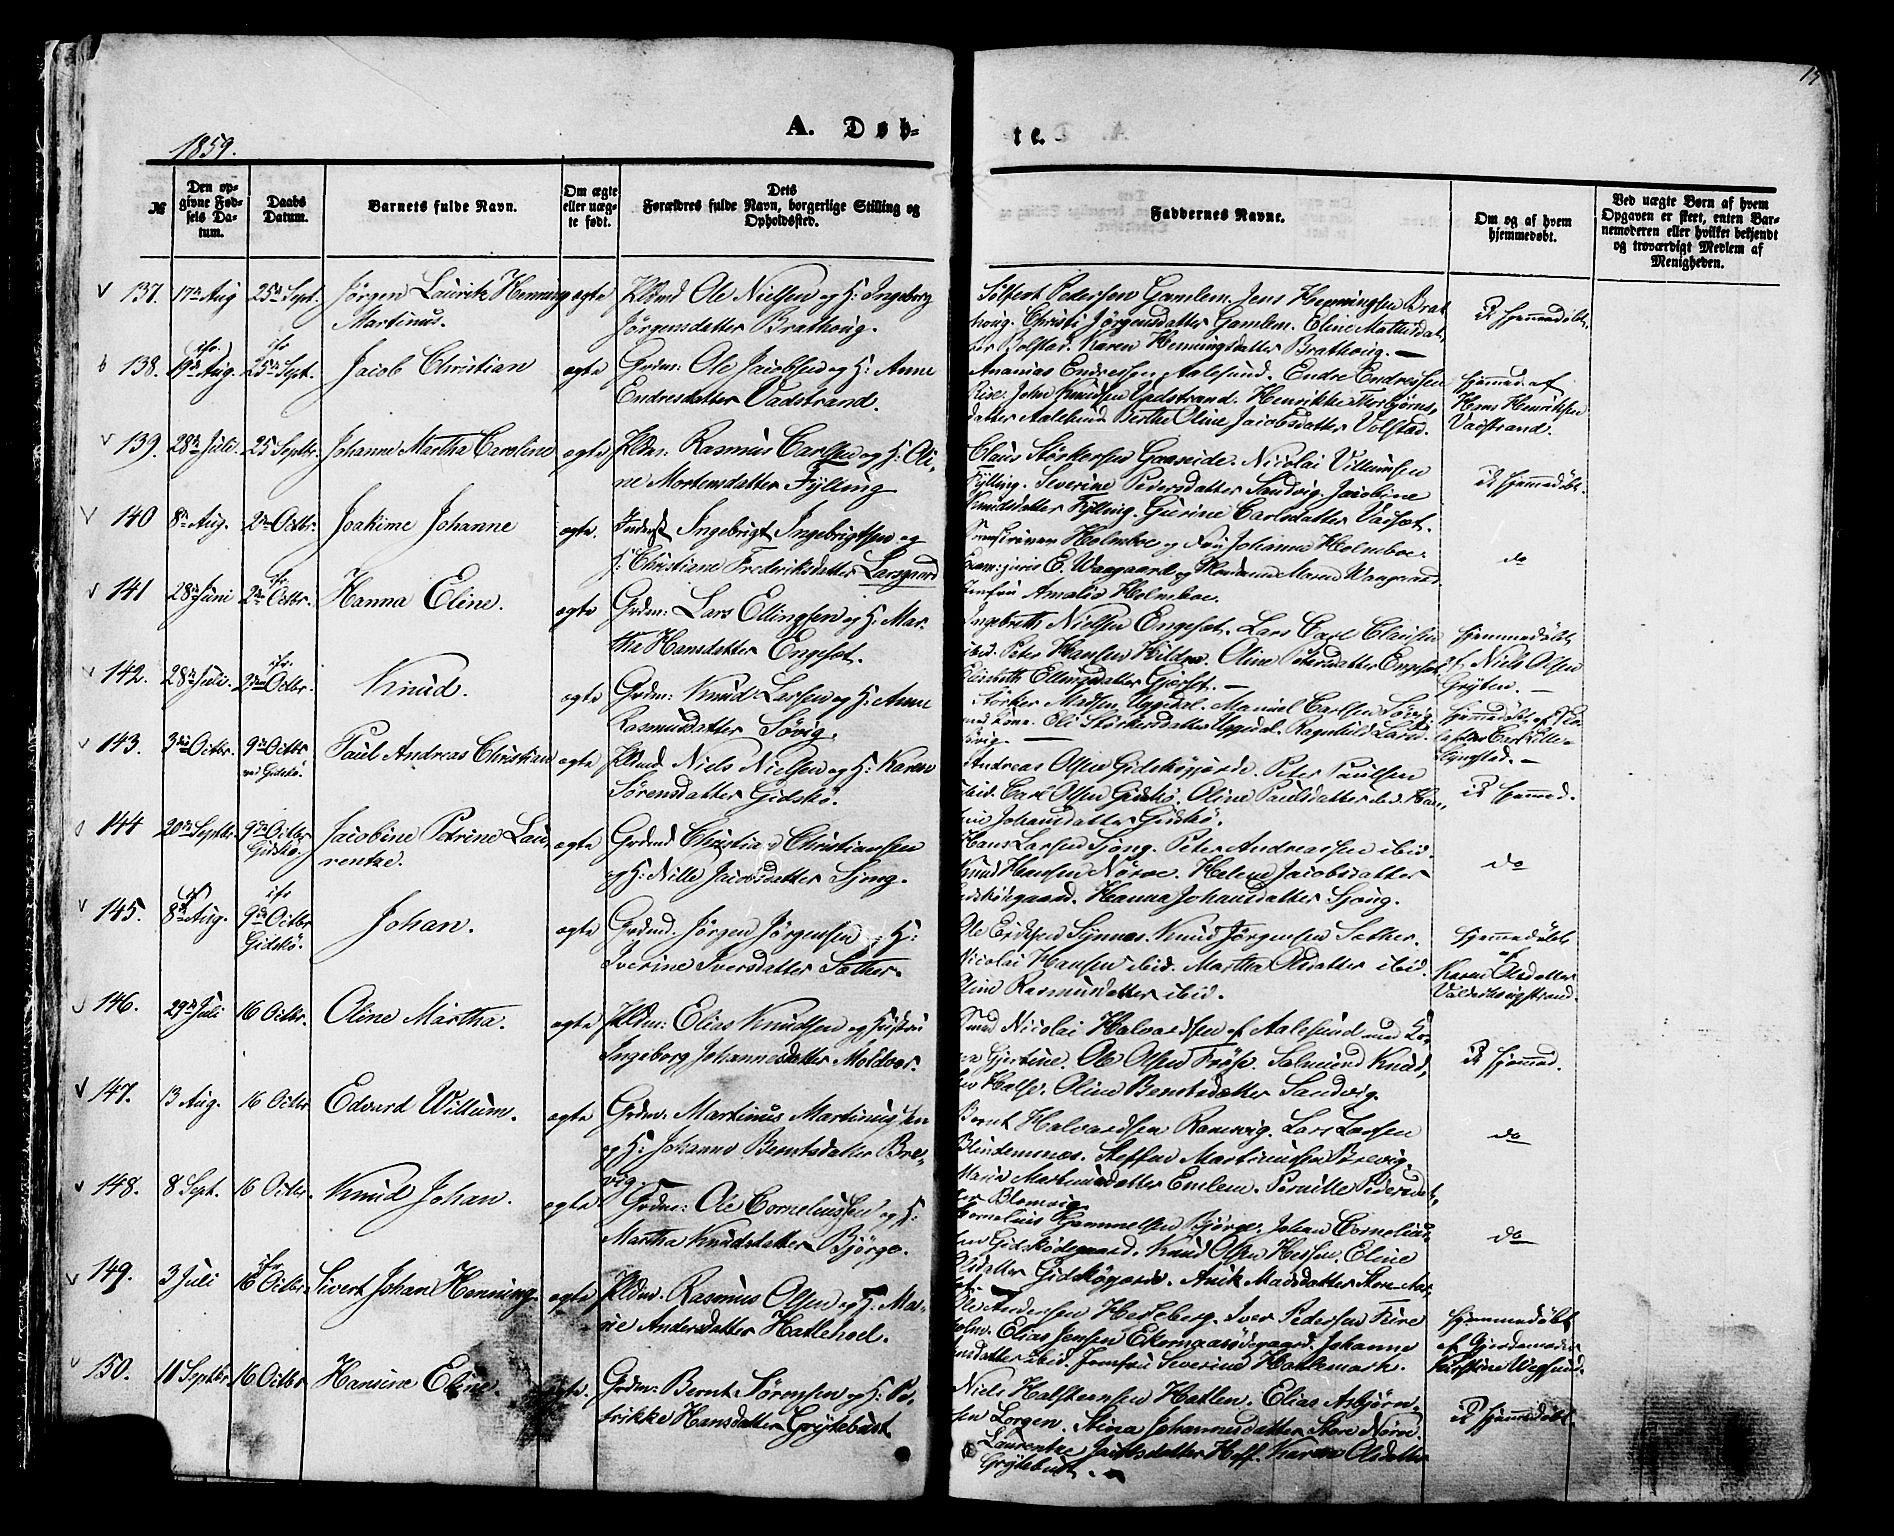 17
A. Døb-
te.
1859.
№
Den op-
givne Fød-
sels Da-
tum.
Daabs
Datum.
Barnets fulde Navn.
Om ægte
eller uæg-
te født.
Dets
Forældres fulde Navn, borgerlige Stilling og
Opholdssted.
Faddernes Navne.
Om og af hvem
hjemmedøbt.
Ved uægte Børn af hvem
Opgaven er skeet, enten Bar-
nemoderen eller hvilket bekjendt
og troværdigt Medlem af
Menigheden.
137. 17de Aug 25de Sept. Jørgen Lauritz Henning ægte Pldmd Ole Nielsen og H: Ingeborg
Martinus. Jørgensdatter Brathoug.
Sølfest Pedersen Gamlem. Jens Henningsen Brat-
houg. Christi Jørgensdatter Gamlem. Eline Mathisdat-
ter Bolstad. Karen Henningsdatter Brathoug. —
138. 19de Aug. 25de Sept. Jacob Christian ægte Grdm: Ole Jacobsen og H: Anne
Endresdatter Vadstrand.
Ananias Endressen Aalesund. Endre Endressen
Rise. John Knudsen Vadstrand. Henrikke Thorbjørns-
datter Aalesund. Berthe Oline Jacobsdatter Volstad.
hjemmed. af
Hans Henriksen
Vadstrand.
139. 28de Juli 25 Septbr. Johanne Martha Caroline ægte Pldm: Rasmus Carlsen og H: Oli-
ne Mortensdatter Fylling
Claus Størkersen Gaaseide. Nicolai Villumsen
Fylling. Severine Pedersdatter Sandvig. Jacobine
Knudsdatter Fylling. Gurine Carlsdatter Vasset.
140 8de Aug. 2den Octbr. Joakime Johanne ægte. Inderst Ingebrigt Ingebrigtsen og
H: Christiane Frederiksdatter Larsgaard
Holmboe og Fru Johanne Holmboe.
Exam: juris E. Waagaard og Madame Maren Waagaard.
Jomfru Amalie Holmboe.
do
141 28de Juni 2den Octbr. Hanna Eline. ægte Grdm: Lars Ellingsen og H: Mar-
tha Hansdatter Engeset.
Ingebreth Nielsen Engeset. Lars Carl Clausen
ibid. Peter Hansen Hildre. Oline Petersdatter Engeset.
Elisabeth Ellingsdatter Gjærset. —
hjemmedøbt
af Niels Olsen
Gryten. —
142. 28de Juli. 2den Octbr. Knud. ægte Grdm: Knud Larsen og H: Anne
Rasmusdatter Søvig.
Størker Madsen Uggedal. Manuel Carlsen Søvig
med Kone. Eli Størkersdatter Uggedal. Ragnhild Larsd.
Søvig —
143. 3die Octbr. 9de Octbr Paul Andreas Christian ægte Pldmd Niels Nielsen og H: Karen
ved Gidskø. Sørensdatter Gidskø.
Andreas Olsen Gidskøgjerde. Peter Paulsen
ibid. Carl Olsen Gidskø. Oline Paulsdatter ibid. Han-
ne Johansdatter Gidskø.
144 20de Septbr 9de Octbr Jacobine Petrine Lau- ægte Grdmd Christian Christiansen
Gidskø. rentze. og H: Nille Jacobsdatter Sjong.
Hans Larsen Sjong. Peter Andreassen ibid.
Knud Hansen Nørve. Helene Jacobsdatter
Hanna Johansdatter Sjong.
do
145. 8de Aug. 9de Octbr Johan. ægte Grdmd. Jørgen Jørgensen og H:
Gidskø. Iverine Iversdatter Sæther.
Ole Eriksen Synnes. Knud Jørgensen Sæther.
Nicolai Hansen ibid. Martha Olsdatter ibid.
Oline Rasmusdatter ibid.
hjemmedøbt
af
Karen Olsdatter
Valderhougstrand.
146. 29de Juli 16 Octbr. Oline Martha. ægte Pldm: Elias Knudsen og Hustru
Ingeborg Johannesdatter Moldvær.
Nicolai Halvardsen af Aalesund med Ko-
ne Gjertine. Ole Olsen Frøse. Salmund Knud-
sen Halse. Oline Berntsdatter Sandvig.
147. 13 Aug. 16 Octbr Edvard Willum. ægte Grdm: Martinus Martinussen
og H: Johanne Berntsdatter Bre-
vig.
Bernt Halvardsen Ramsvig. Lars Larsen
Blindemnæs. Steffen Martinussen Brevig.
Marie Martinusdatter Emlem. Pernille Pedersdat-
ter Blomvig.
do
148. 8 Sept. 16 Octbr. Knud Johan. ægte Grdm: Ole Corneliussen og H:
Martha Knudsdatter Bjørge.
Cornelius Gammelsen Bjørge. Johan Cornelius-
sen Gidskødegaard. Knud Olsen Hessen. Eline
Olsdatter Gidskøgjerde. Anik Madsdatter Store Aar-
set.
do
149. 3 Juli 16 Octbr. Sivert Johan Henning. ægte Pldm. Rasmus Olsen og H. Ma-
rie Andersdatter Hatlehoel.
Ole Andersen Hesseberg. Iver Pedersen Furre
holm. Elias Jensen Ekornaasødegaard. Johanne
Jensdatter ibid. Jomfru Severine Hattemark.
hjemmedøbt
af Gjordemoder
Kirstine Wegsund.
150. 10 Septbr 16 Octbr Hansine Eline. ægte. Grdm: Bernt Sørensen og H: Pe-
trikke Hansdatter Grytebust
Niels Halsteensen Hatlen. Elias Asbjørn-
sen Lorgen. Stina Johannesdatter Store Nørve.
Laurentze Jacobsdatter Hoff. Karen Olsdatter
Grytebust. —